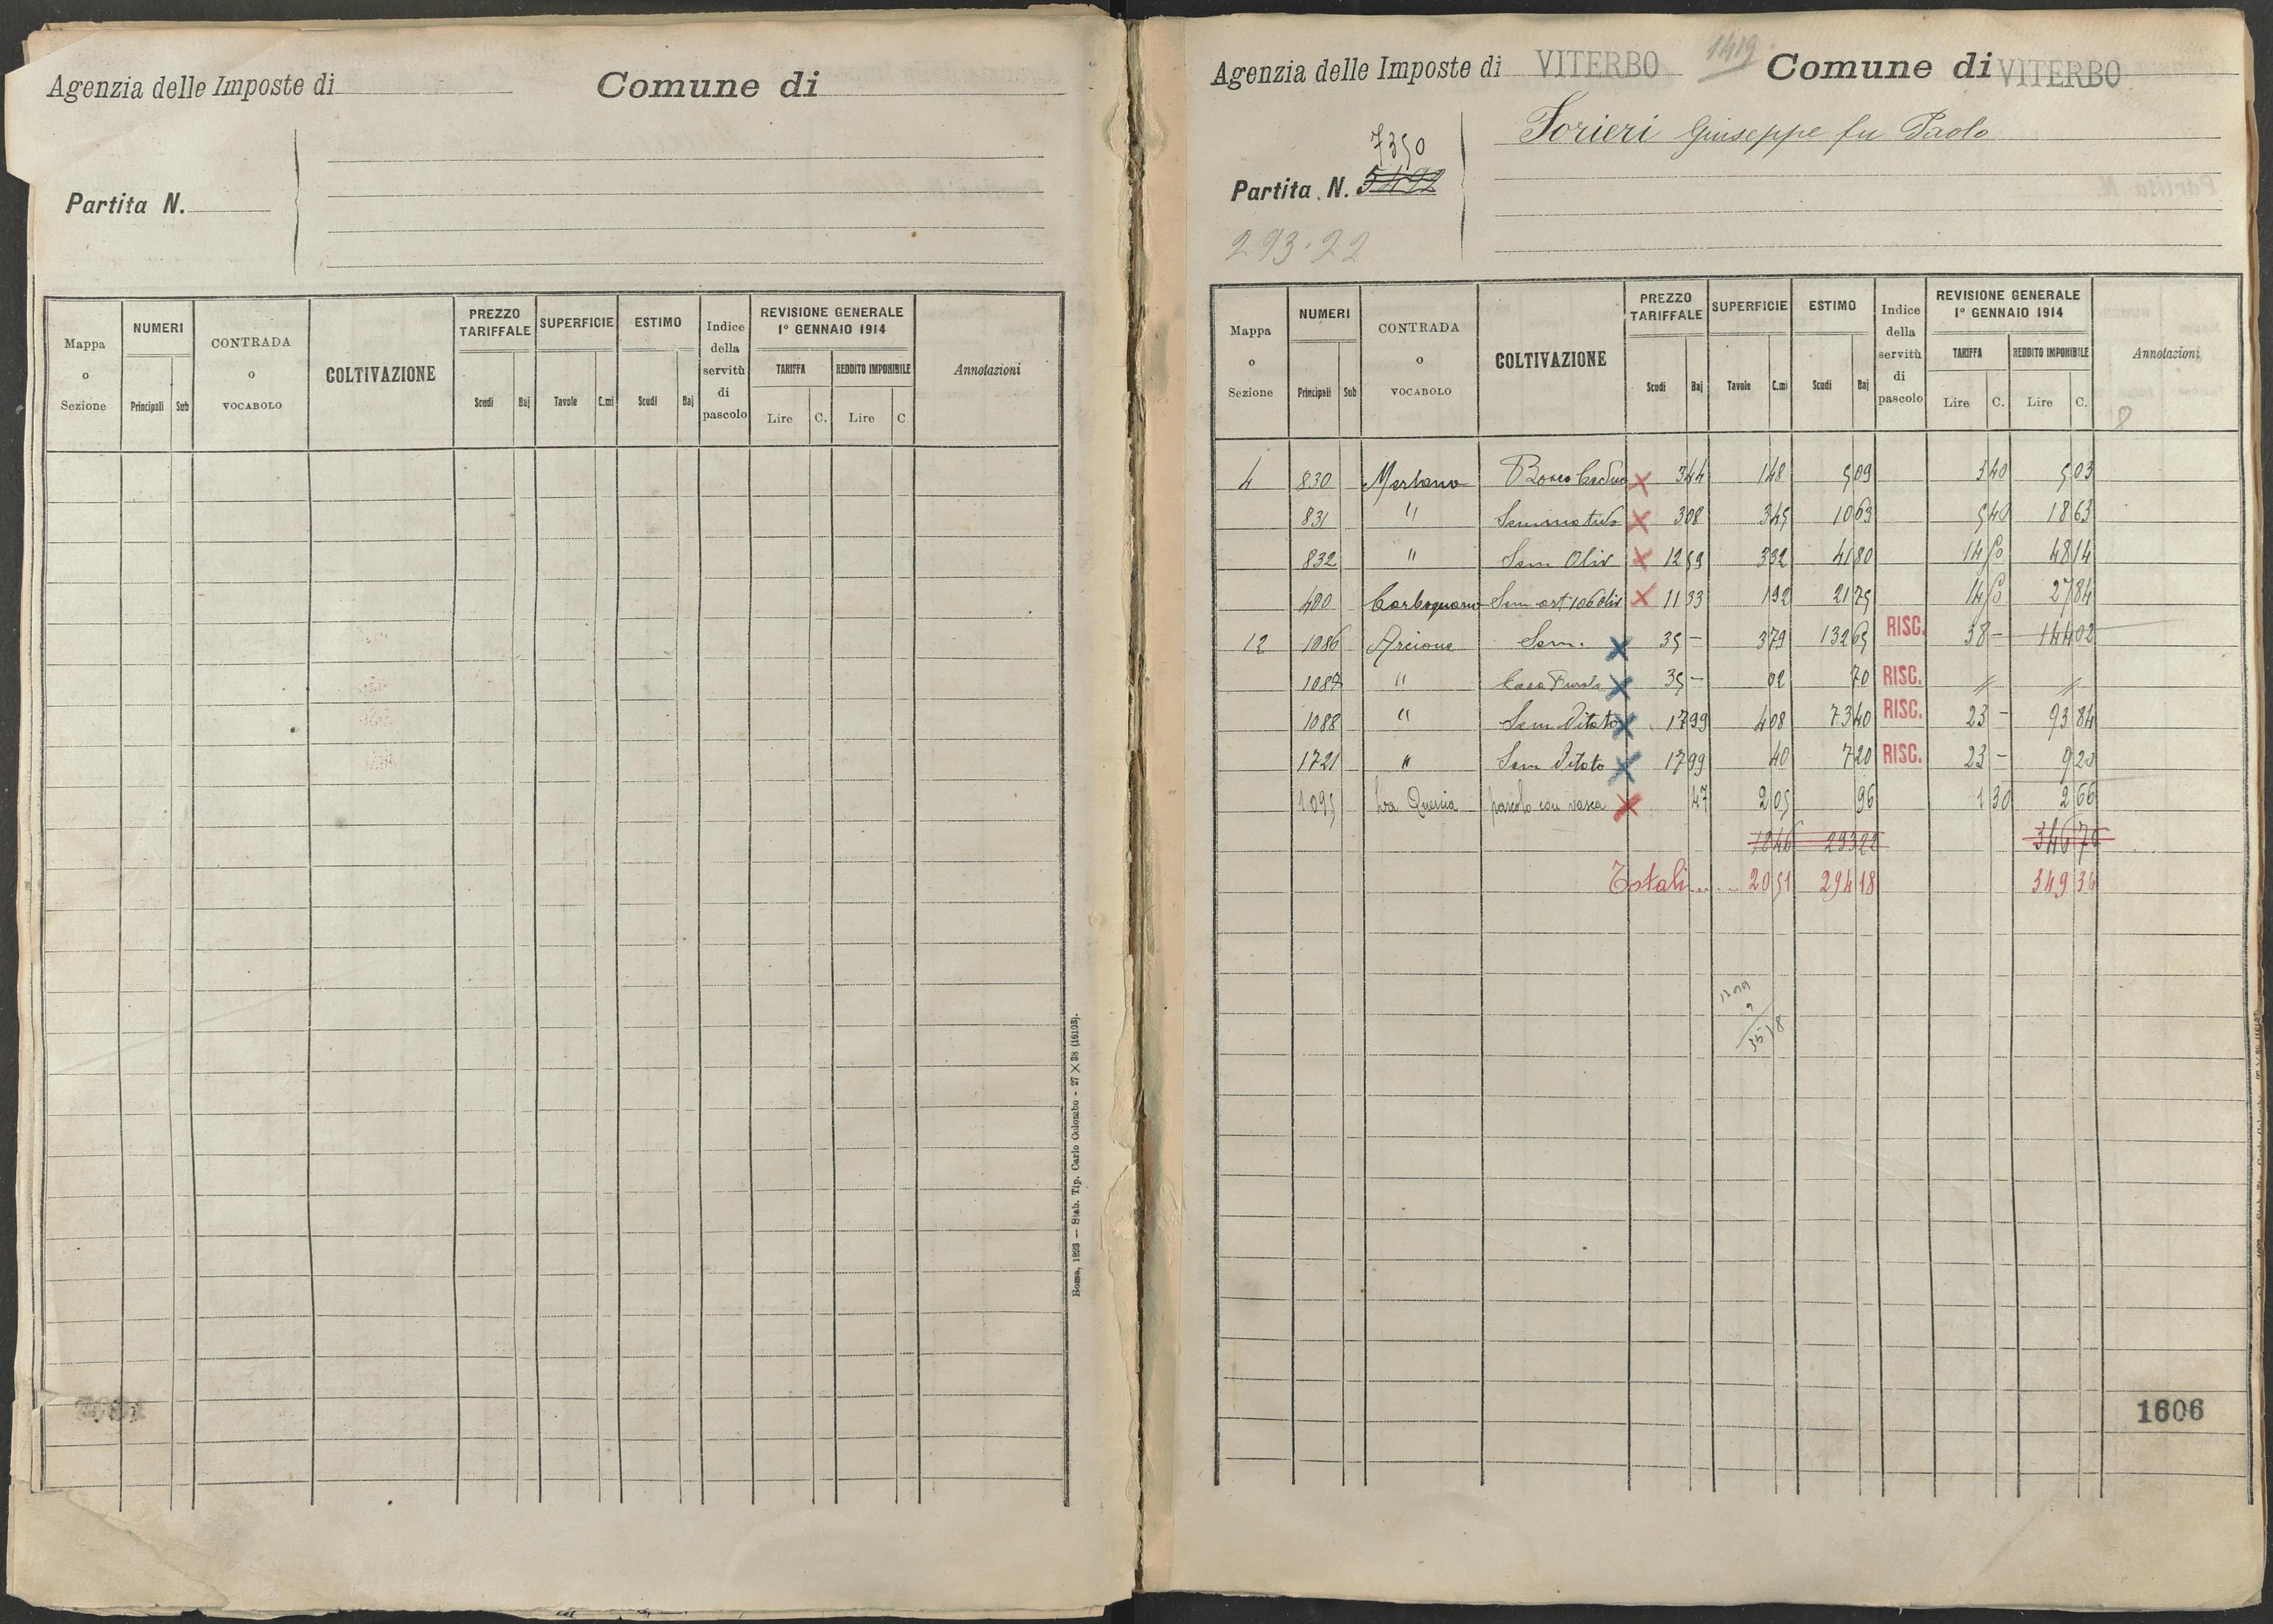 Agenzia delle Imposte di
Comune di
Partita N.
Mappa o Sezione
NUMERI
Principali Sub
CONTRADA o VOCABOLO
COLTIVAZIONE
PREZZO TARIFFALE
Scudi Baj
SUPERFICIE
Tavole C.mi
ESTIMO
Scudi Baj
Indice della servitù di pascolo
REVISIONE GENERALE 1° GENNAIO 1914
TARIFFA
Lire C.
REDDITO IMPONIBILE
Lire C
Annotazioni
Roma, 1923 — Stab. Tip. Carlo Colombo - 27 X 38 (16103).
Agenzia delle Imposte di VITERBO 1419 Comune di VITERBO
Giuseppe fu Paolo
7350
Partita N. 5492
293.22
Mappa o Sezione
NUMERI
Principali Sub
CONTRADA o VOCABOLO
COLTIVAZIONE
PREZZO TARIFFALE
Scudi Baj
SUPERFICIE
Tavole C.mi
ESTIMO
Scudi Baj
Indice della servitù di pascolo
REVISIONE GENERALE 1° GENNAIO 1914
TARIFFA
Lire C.
REDDITO IMPONIBILE
Lire C.
Annotazioni
4 830 Merlano Bosco Ceduo X 3 44 1 48 5 09 3 40 5 03
831 " Seminativo X 3 08 3 45 10 63 5 40 18 63
832 " Sem Oliv X 12 59 3 32 41 80 14 50 48 14
400 Carbognano X 11 33 1 92 21 75 14 50 27 84
12 1086 Arcione Sem. X 35 - 3 79 132 65 RISC. 38 - 144 02
1087 " Casa Rurale X 35 - 02 70 RISC. " "
1088 " Sem Vitato X 17 99 4 08 73 40 RISC. 23 - 93 84
1721 " Sem Vitato X 17 99 40 7 20 RISC. 23 - 9 20
1095 Quercia pascolo con vasca X 47 2 05 96 1 30 2 66
18 46 293 22 346 70
Totali ... 20 51 294 18 349 36
1606